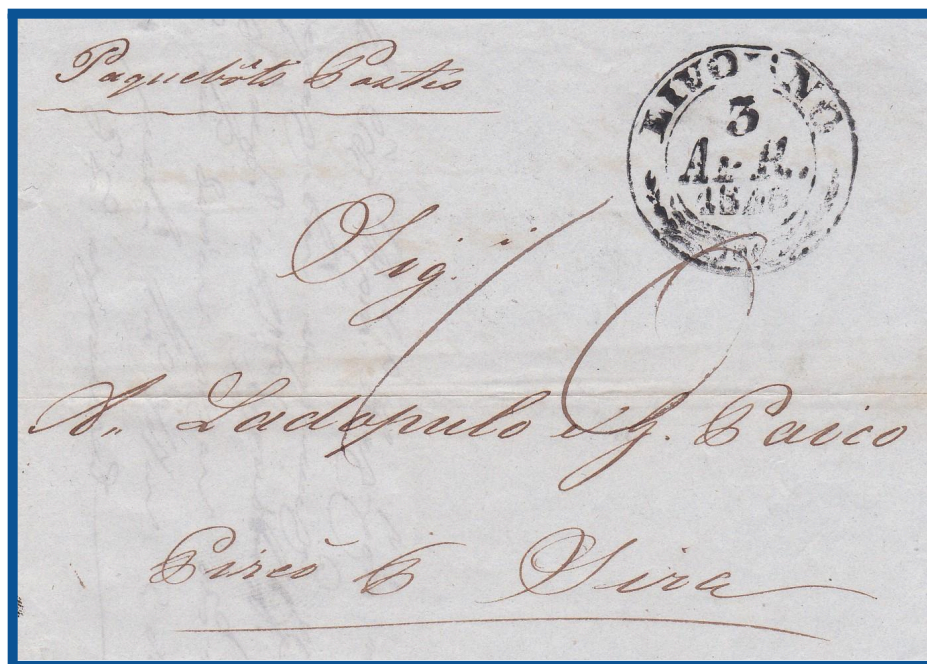 Paquebôts Postis
LIVORNO
3
APR.
Sig.ri
N. Ladopulo e G. Paico
Pireò
Sira